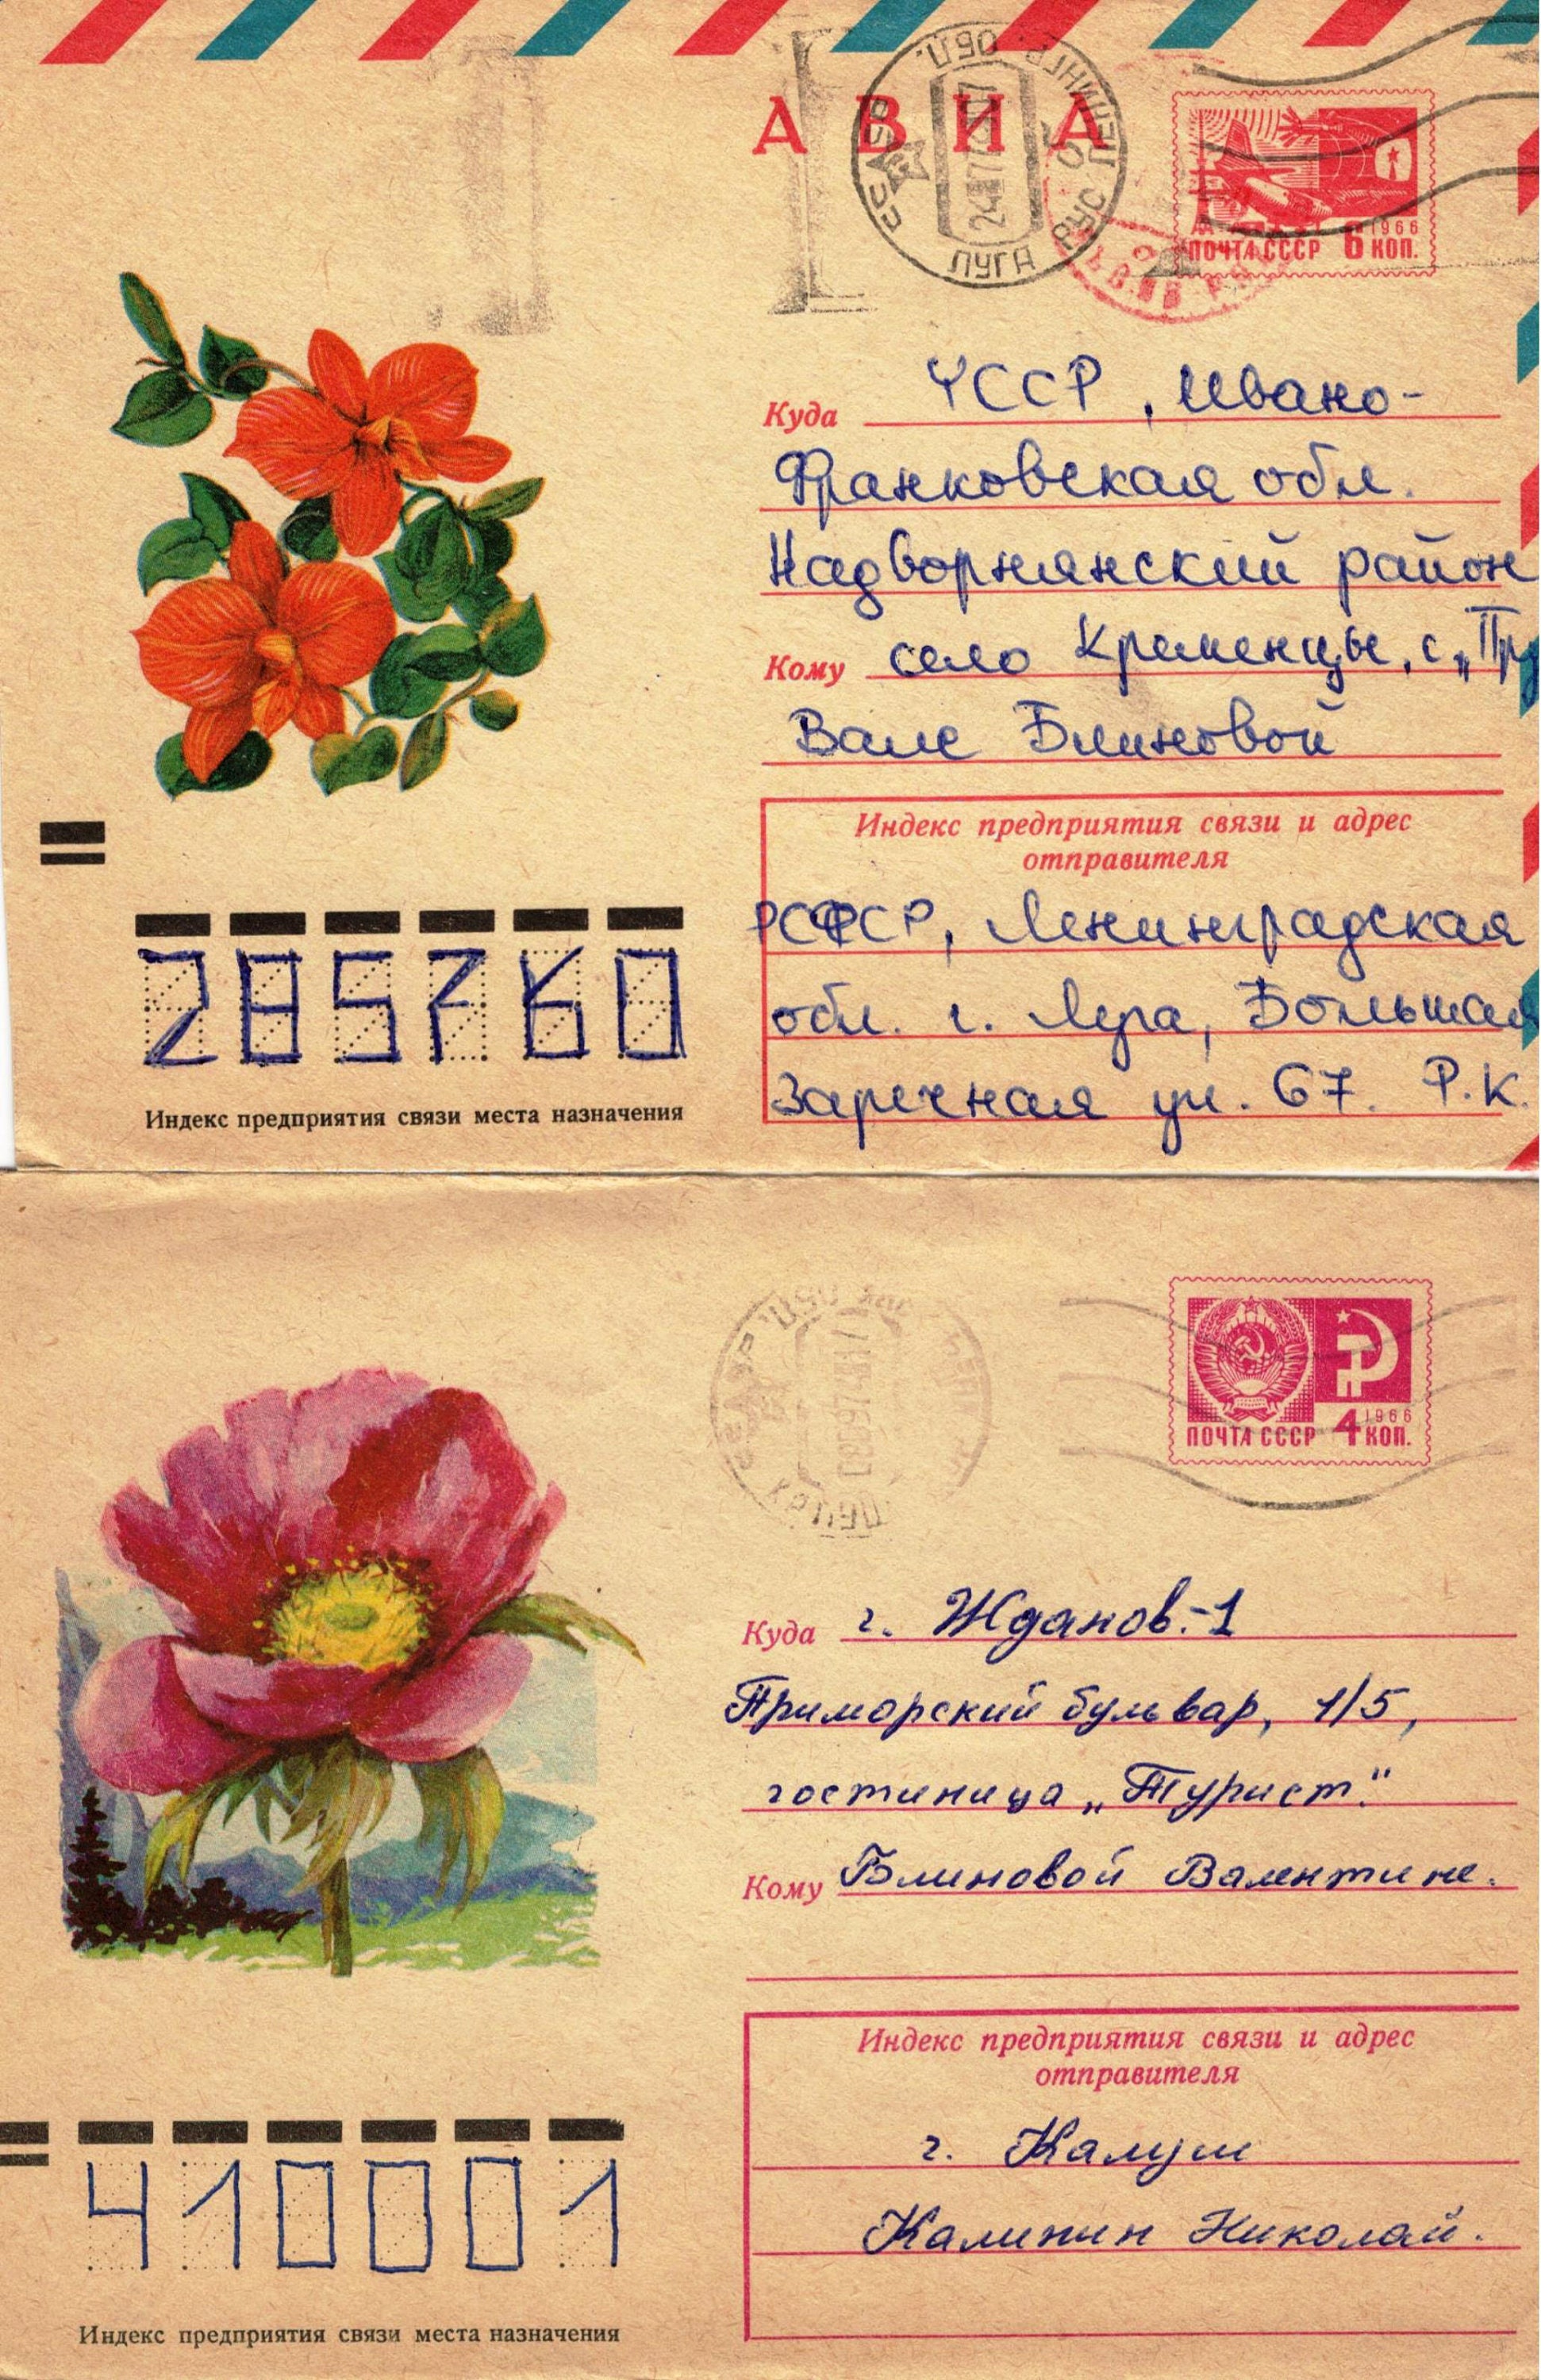 АВИА
СССР ЛЕНИНГР. ОБЛ.
ЛУГА РУС
ПОЧТА СССР 6 КОП.
1966
Куда УССР, Ивано-
Франковская обл.
Надворнянский район
Кому село Кременцы, с „Пру
Вале Блиновой
Индекс предприятия связи и адрес
отправителя
РСФСР, Ленинградская
обл. г. Луга, Большая
Заречная ул. 67. Р.К.
285760
Индекс предприятия связи места назначения
ПОЧТА СССР 4 КОП.
1966
Куда г. Жданов-1
Приморский бульвар, 1/5,
гостиница „Турист."
Кому Блиновой Валентине.
Индекс предприятия связи и адрес
отправителя
г. Калуш
Калинин Николай.
410001
Индекс предприятия связи места назначения